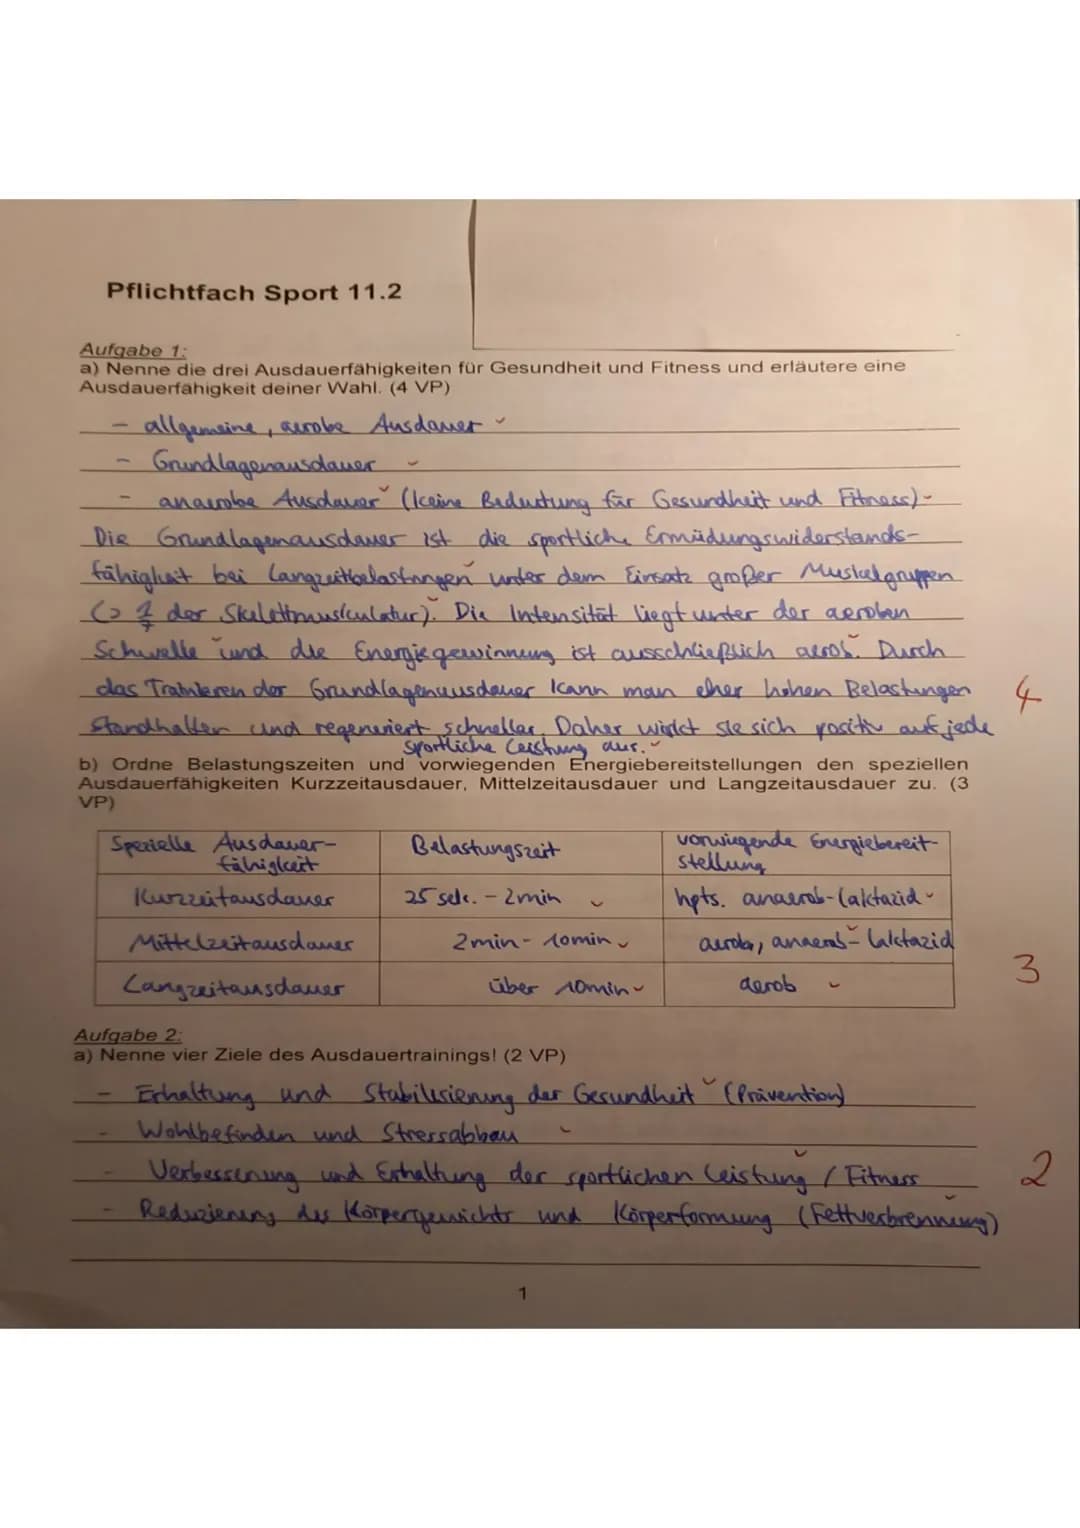 Pflichtfach Sport 11.2
Aufgabe 1:
a) Nenne die drei Ausdauerfähigkeiten für Gesundheit und Fitness und erläutere eine
Ausdauerfähigkeit deiner Wahl. (4 VP)
- allgemeine, aerobe Ausdauer
- Grundlagenausdauer
- anaerobe Ausdauer (keine Bedeutung für Gesundheit und Fitness)
Die Grundlagenausdauer ist die sportliche Ermüdungswiderstands-
fähigkeit bei Langzeitbelastungen unter dem Einsatz großer Muskelgruppen
der Skelettmuskulatur). Die Intensität liegt unter der aeroben
Schwelle und die Energiegewinnung ist ausschließlich aerob. Durch
das Trainieren der Grundlagenausdauer kann man eher hohen Belastungen
4
standhalten und regeneriert schneller. Daher wirkt sie sich positiv auf jede
sportliche Leistung aus.
b) Ordne Belastungszeiten und vorwiegenden Energiebereitstellungen den speziellen
Ausdauerfähigkeiten Kurzzeitausdauer, Mittelzeitausdauer und Langzeitausdauer zu. (3
VP)
Spezielle Ausdauer- Belastungszeit vorwiegende Energiebereit-
fähigkeit stellung
Kurzzeitausdauer 25 sek. - 2min hpts. anaerob-laktazid
Mittelzeitausdauer 2min - 10min aerob, anaerob-laktazid
Langzeitausdauer über 10min aerob
3
Aufgabe 2:
a) Nenne vier Ziele des Ausdauertrainings! (2 VP)
- Erhaltung und Stabilisierung der Gesundheit (Prävention)
- Wohlbefinden und Stressabbau
- Verbesserung und Erhaltung der sportlichen Leistung / Fitness
2
- Reduzierung des Körpergewichts und Körperformung (Fettverbrennung)
1